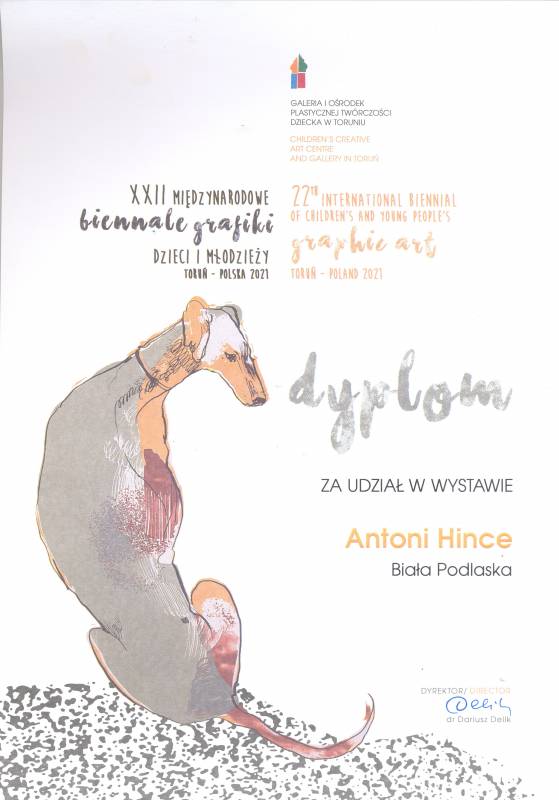 GALERIA I OŚRODEK
PLASTYCZNEJ TWÓRCZOŚCI
DZIECKA W TORUNIU
CHILDREN'S CREATIVE
ART CENTRE
AND GALLERY IN TORUŃ
XXII MIĘDZYNARODOWE
biennale grafiki
DZIECI I MŁODZIEŻY
TORUŃ - POLSKA 2021
22TH INTERNATIONAL BIENNIAL
OF CHILDREN'S AND YOUNG PEOPLE'S
graphic art
TORUŃ - POLAND 2021
dyplom
ZA UDZIAŁ W WYSTAWIE
Antoni Hince
Biała Podlaska
DYREKTOR/ DIRECTOR
DDelik
dr Dariusz Delik